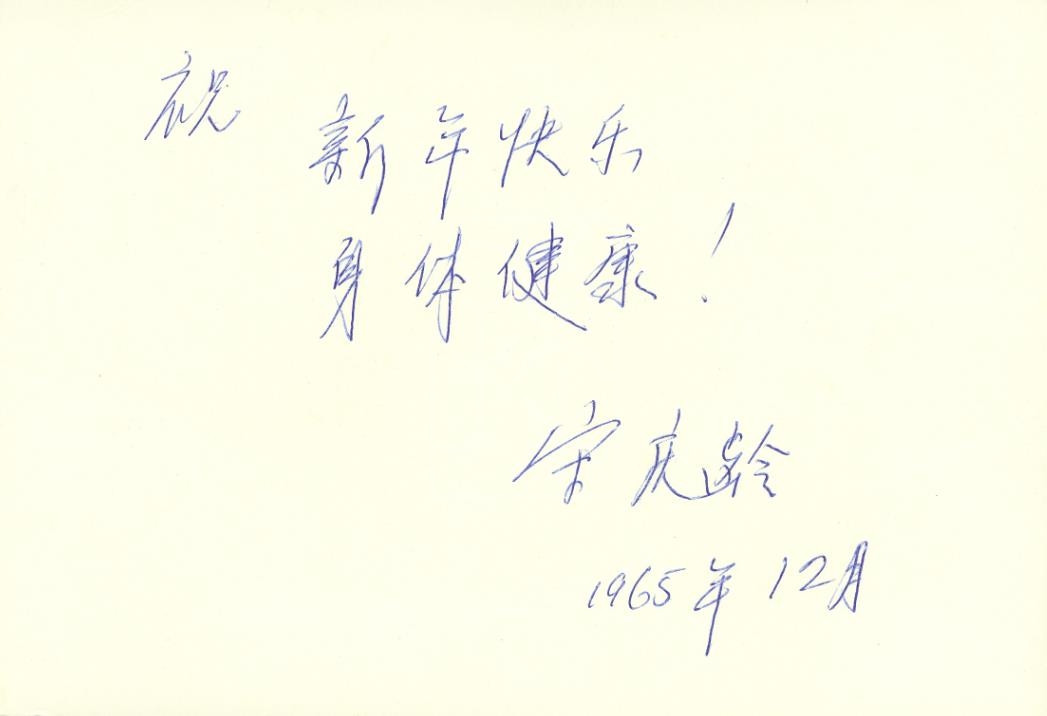 祝
新年快乐
身体健康!
宋庆龄
1965年12月